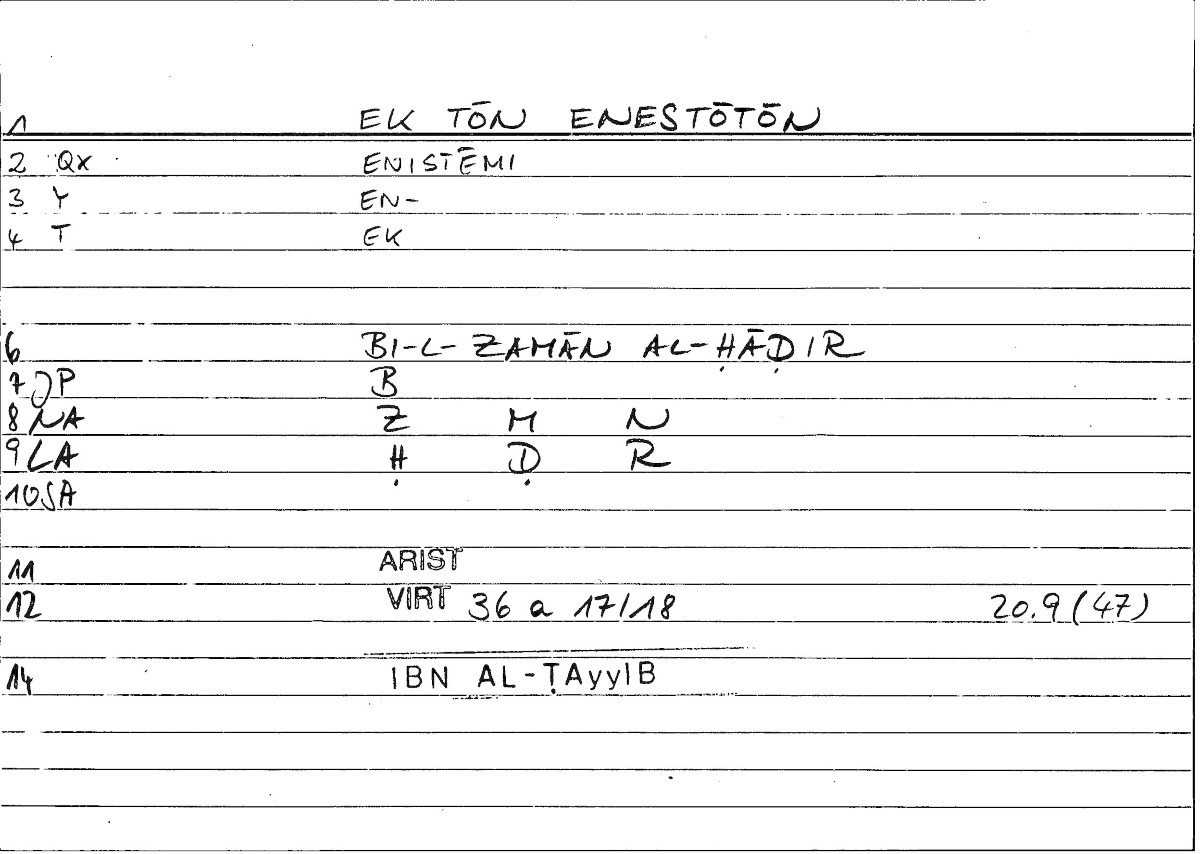 1 EK TŌN ENESTŌTŌN
2 QX ENISTĒMI
3 Y EN-
4 T EK
6 BI-L-ZAMĀN AL-ḤĀḌIR
7 JP B
8 NA Z M N
9 LA Ḥ Ḍ R
10 SA
11 ARIST
12 VIRT 36 a 17/18 20.9 (47)
14 IBN AL-ṬAyyIB